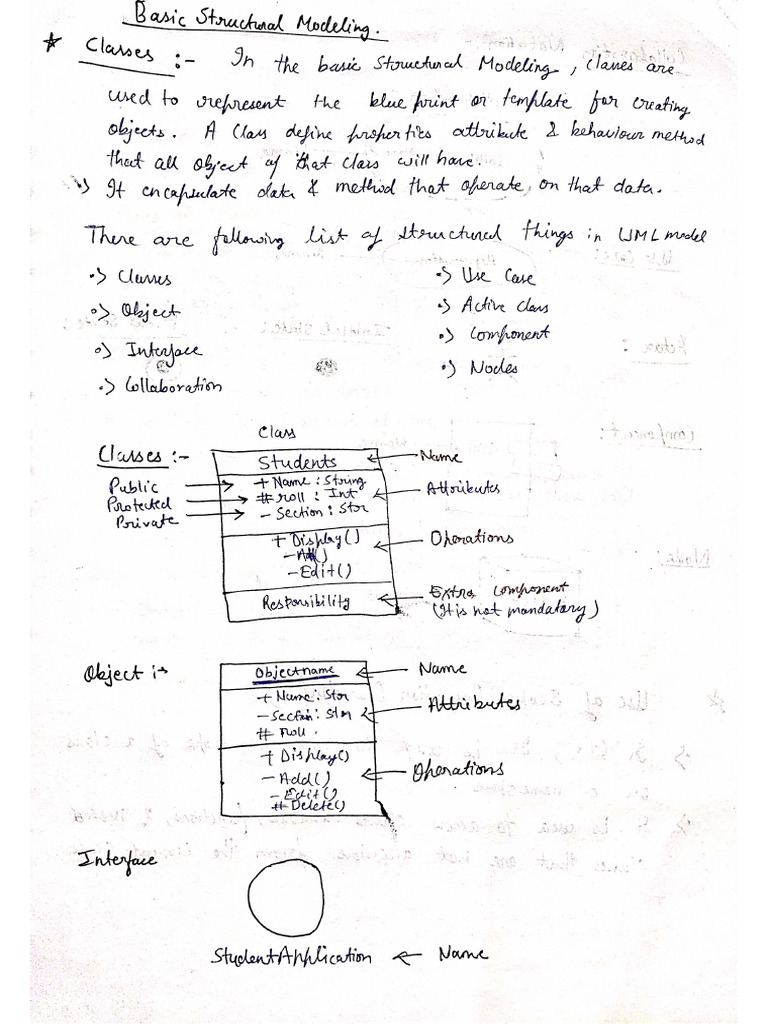 Basic Structural Modeling.
* Classes :- In the basic Structural Modeling, Classes are
used to represent the blue print or template for creating
objects. A Class define properties attribute & behaviour method
that all object of that class will have.
It encapsulate data & method that operate, on that data.
There are following list of structural things in UML model
•> Classes
•> Use Case
•> Object
•> Active Class
•> Interface
•> Component
•> Collaboration
•> Nodes
Class
Classes :-
Students
Name
Public
+ Name : String
Protected
# roll : Int
Attributes
Private
- Section : Str
+ Display()
Operations
- Edit()
Responsibility
Extra Component
(It is not mandatory)
Object :-
Objectname
Name
+ Name : Str
- Section : Str
Attributes
# roll .
+ Display()
- Add()
Operations
- Edit()
# Delete()
Interface
StudentApplication ← Name